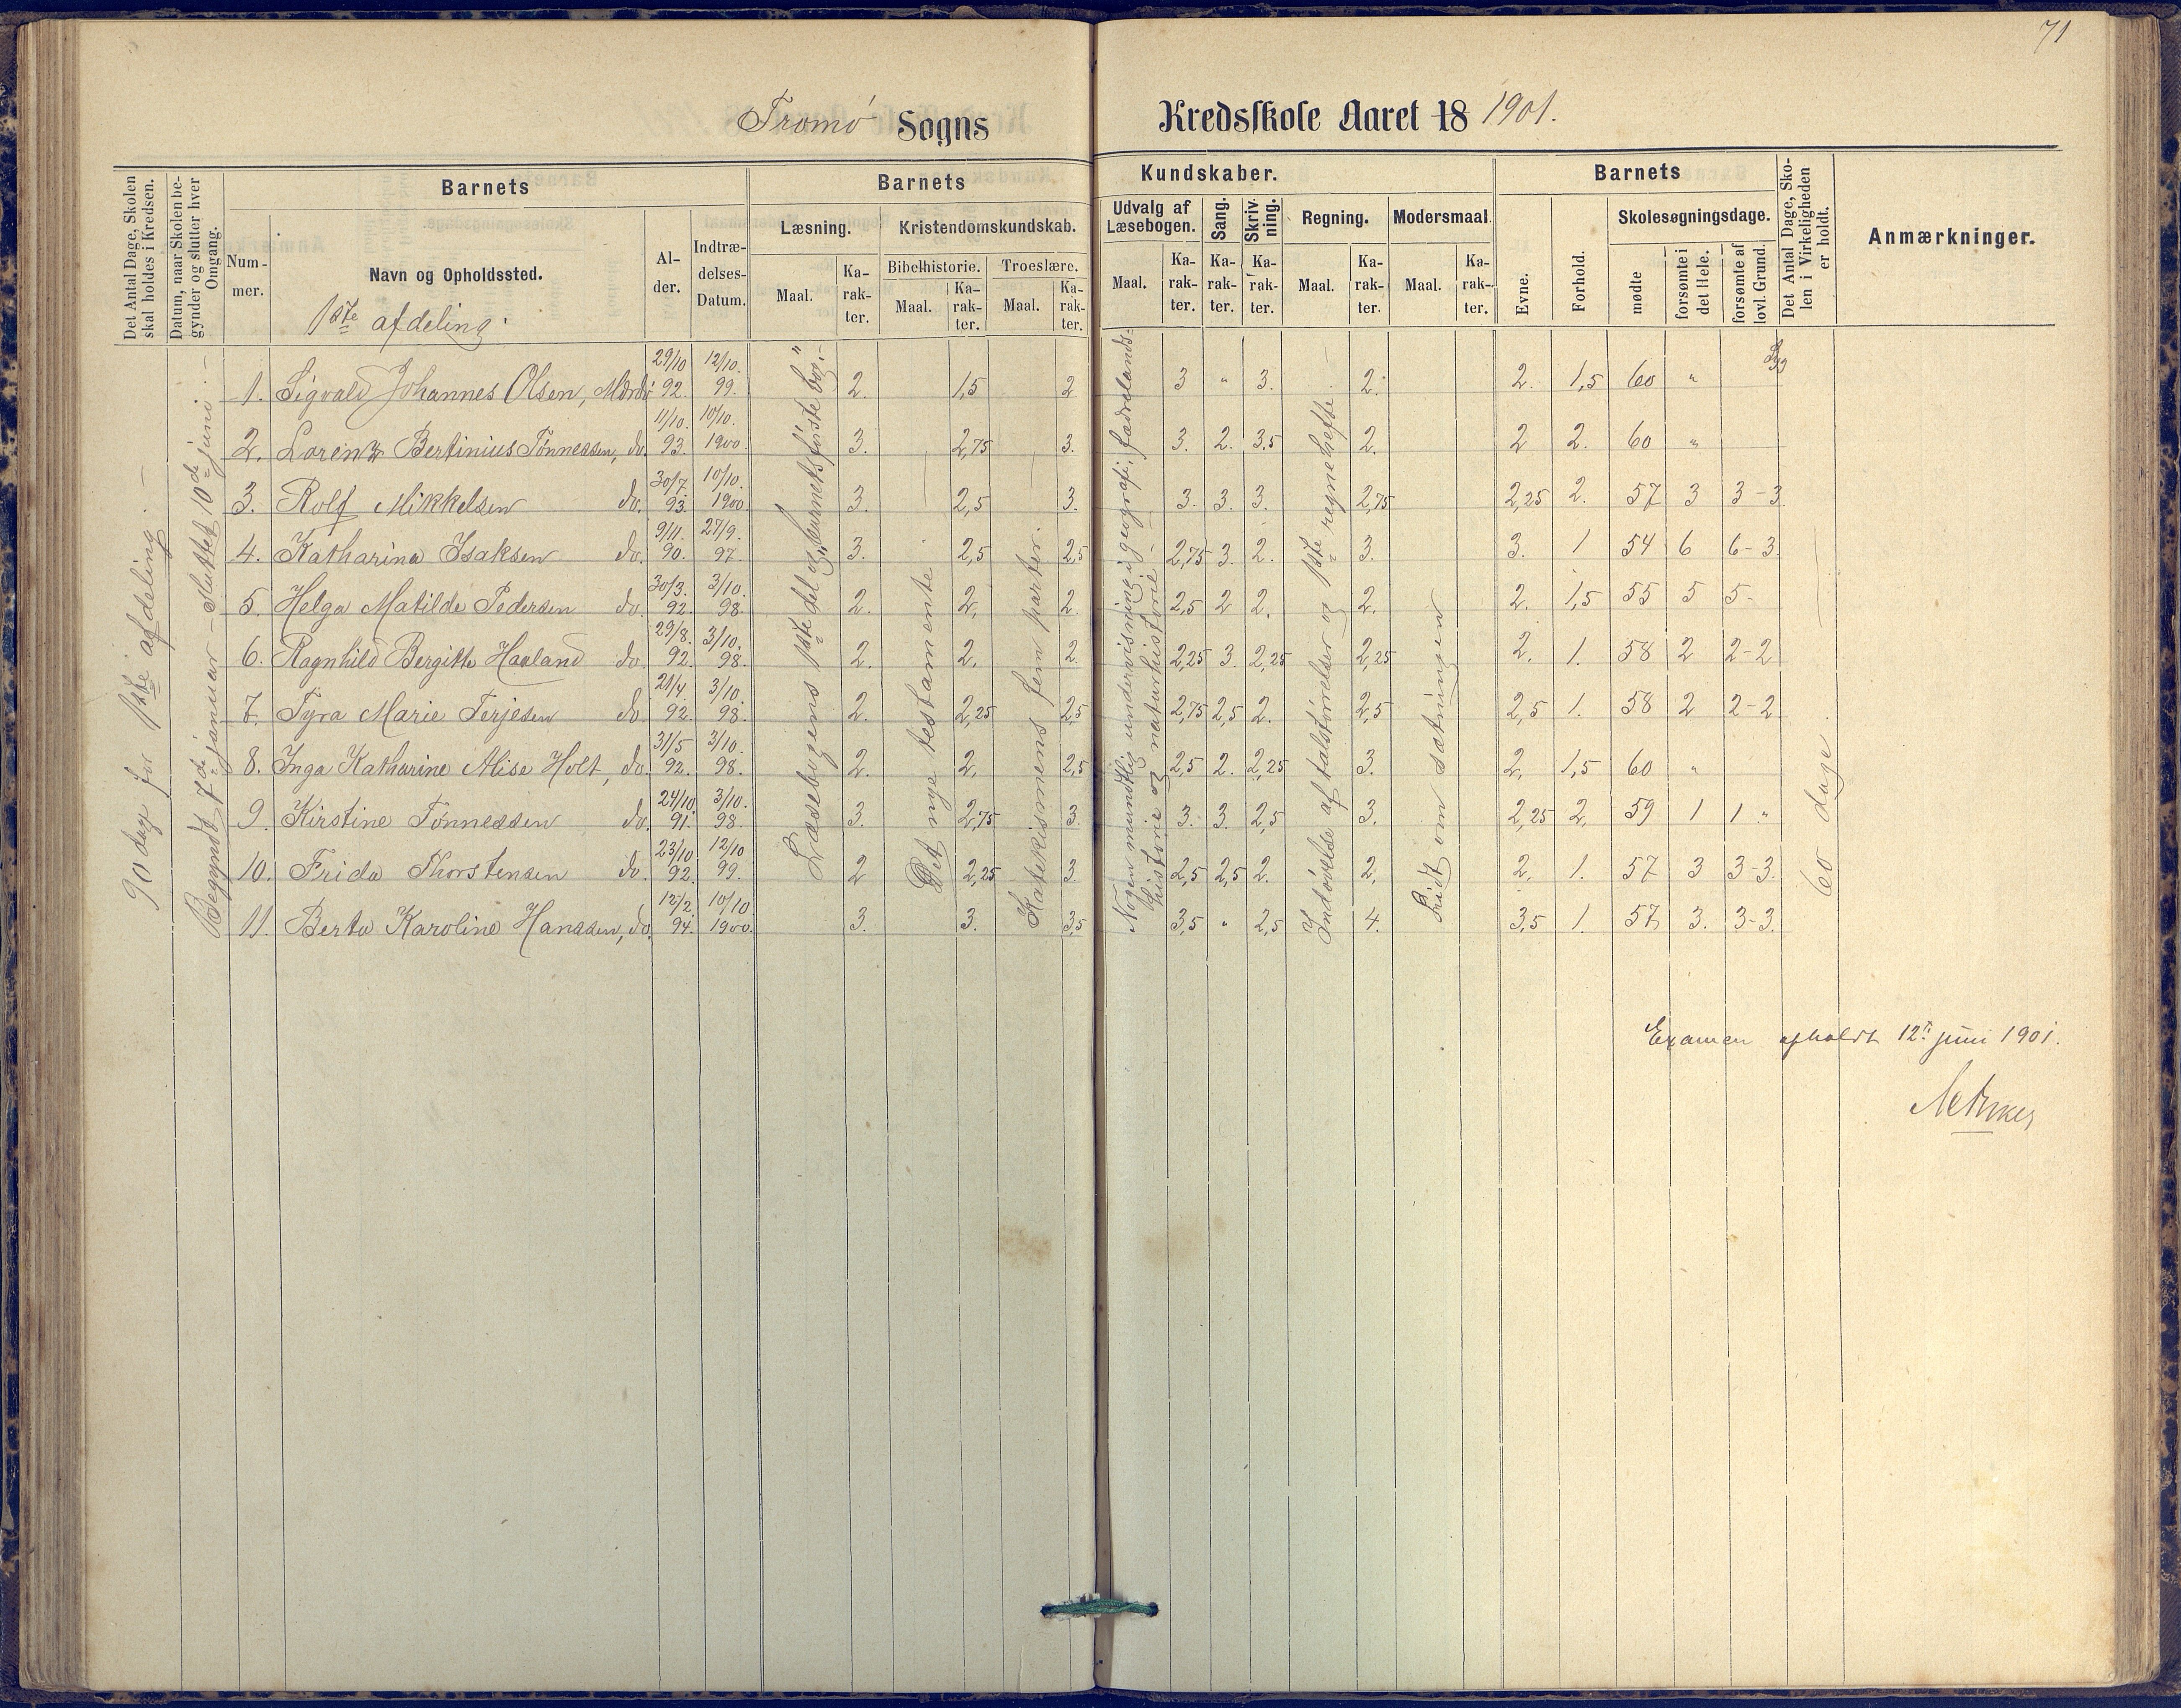 71
Tromø Sogns Kredsskole Aaret 18 1901.
Det Antal Dage, Skolen skal holdes i Kredsen.
Datum, naar Skolen begynder og slutter hver Omgang.
Barnets
Nummer.
Navn og Opholdssted.
1ste afdeling.
Alder.
Indtrædelses-Datum.
Barnets Kundskaber.
Læsning.
Maal.
Karakter.
Kristendomskundskab.
Bibelhistorie.
Maal.
Karakter.
Troeslære.
Maal.
Karakter.
Udvalg af Læsebogen.
Maal.
Karakter.
Sang.
Karakter.
Skrivning.
Karakter.
Regning.
Maal.
Karakter.
Modersmaal.
Maal.
Karakter.
Barnets
Evne.
Forhold.
Skolesøgningsdage.
mødte
forsømte i det Hele.
forsømte af lovl. Grund.
Det Antal Dage, Skolen i Virkeligheden er holdt.
Anmærkninger.
90 dage for 1ste afdeling. —
Begyndt 7de januar – Sluttet 10de juni. —
Læsebogens 1ste del og „barnets første bog". –
Det nye testamente
Katekismens fem parter.
Nogen mundtlig undervisning i geografi, fædrelands-
historie og naturhistorie. –
Indøvelse af talstørrelser og 1ste regnehefte. –
Lidt om sætningen
60 dage
Syg
1. Sigvald Johannes Olsen, Mærdø 29/10 92. 12/10. 99. 2. 1,5 2 3 " 3. 2. 2. 1,5 60 "
2. Lorentz Bertinius Tønnessen, do. 11/10. 93. 10/10. 1900. 3. 2,75 3. 3. 2. 3,5 2. 2 2. 60 "
3. Rolf Mikkelsen do. 30/7. 93. 10/10. 1900 3. 2,5 3. 3. 3. 3. 2,75 2,25 2. 57 3 3-3
4. Katharina Isaksen do. 9/11. 90. 27/9. 97. 3. 2,5 2,5 2,75 3. 2. 3. 3. 1 54 6 6-3.
5. Helga Matilde Pedersen do. 30/3. 92. 3/10. 98. 2. 2. 2. 2,5 2 2. 2. 2. 1,5 55 5 5-
6. Ragnhild Bergitte Haaland do. 29/8. 92. 3/10. 98. 2. 2. 2. 2,25 3. 2,25 2,25 2. 1. 58 2 2-2
7. Tyra Marie Terjesen do. 21/4 92. 3/10. 98. 2. 2,25 2,5 2,75 2,5 2. 2,5 2,5 1. 58 2 2-2
8. Inga Katharine Alise Holt, do. 31/5 92. 3/10. 98. 2. 2. 2,5 2,5 2. 2,25 3. 2. 1,5 60 "
9. Kirstine Tønnessen do. 24/10 91. 3/10. 98. 3. 2,75 3. 3. 3. 2,5 3. 2,25 2. 59 1 1 "
10. Frida Thorstensen do. 23/10 92. 12/10 99. 2 2,25 3. 2,5 2,5 2. 2. 2. 1. 57 3 3-3.
11. Berta Karoline Hanssen, do. 12/2. 94. 10/10 1900. 3. 3. 3,5 3,5 " 2,5 4. 3,5 1. 57 3. 3-3.
Examen afholdt 12te juni 1901.